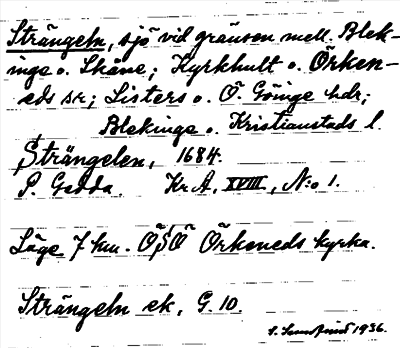 Strängeln, sjö vid gränsen mell. Blek-
inge o. Skåne; Kyrkhult o. Örken-
eds sr; Listers o. Ö Göinge hdr;
Blekinge o. Kristianstads l.
Strängelen, 1684.
P. Gedda. Kr A, XVIII, N:o 1.
Läge 7 km. ÖSÖ Örkeneds kyrka.
Strängeln ek, G. 10.
1936.